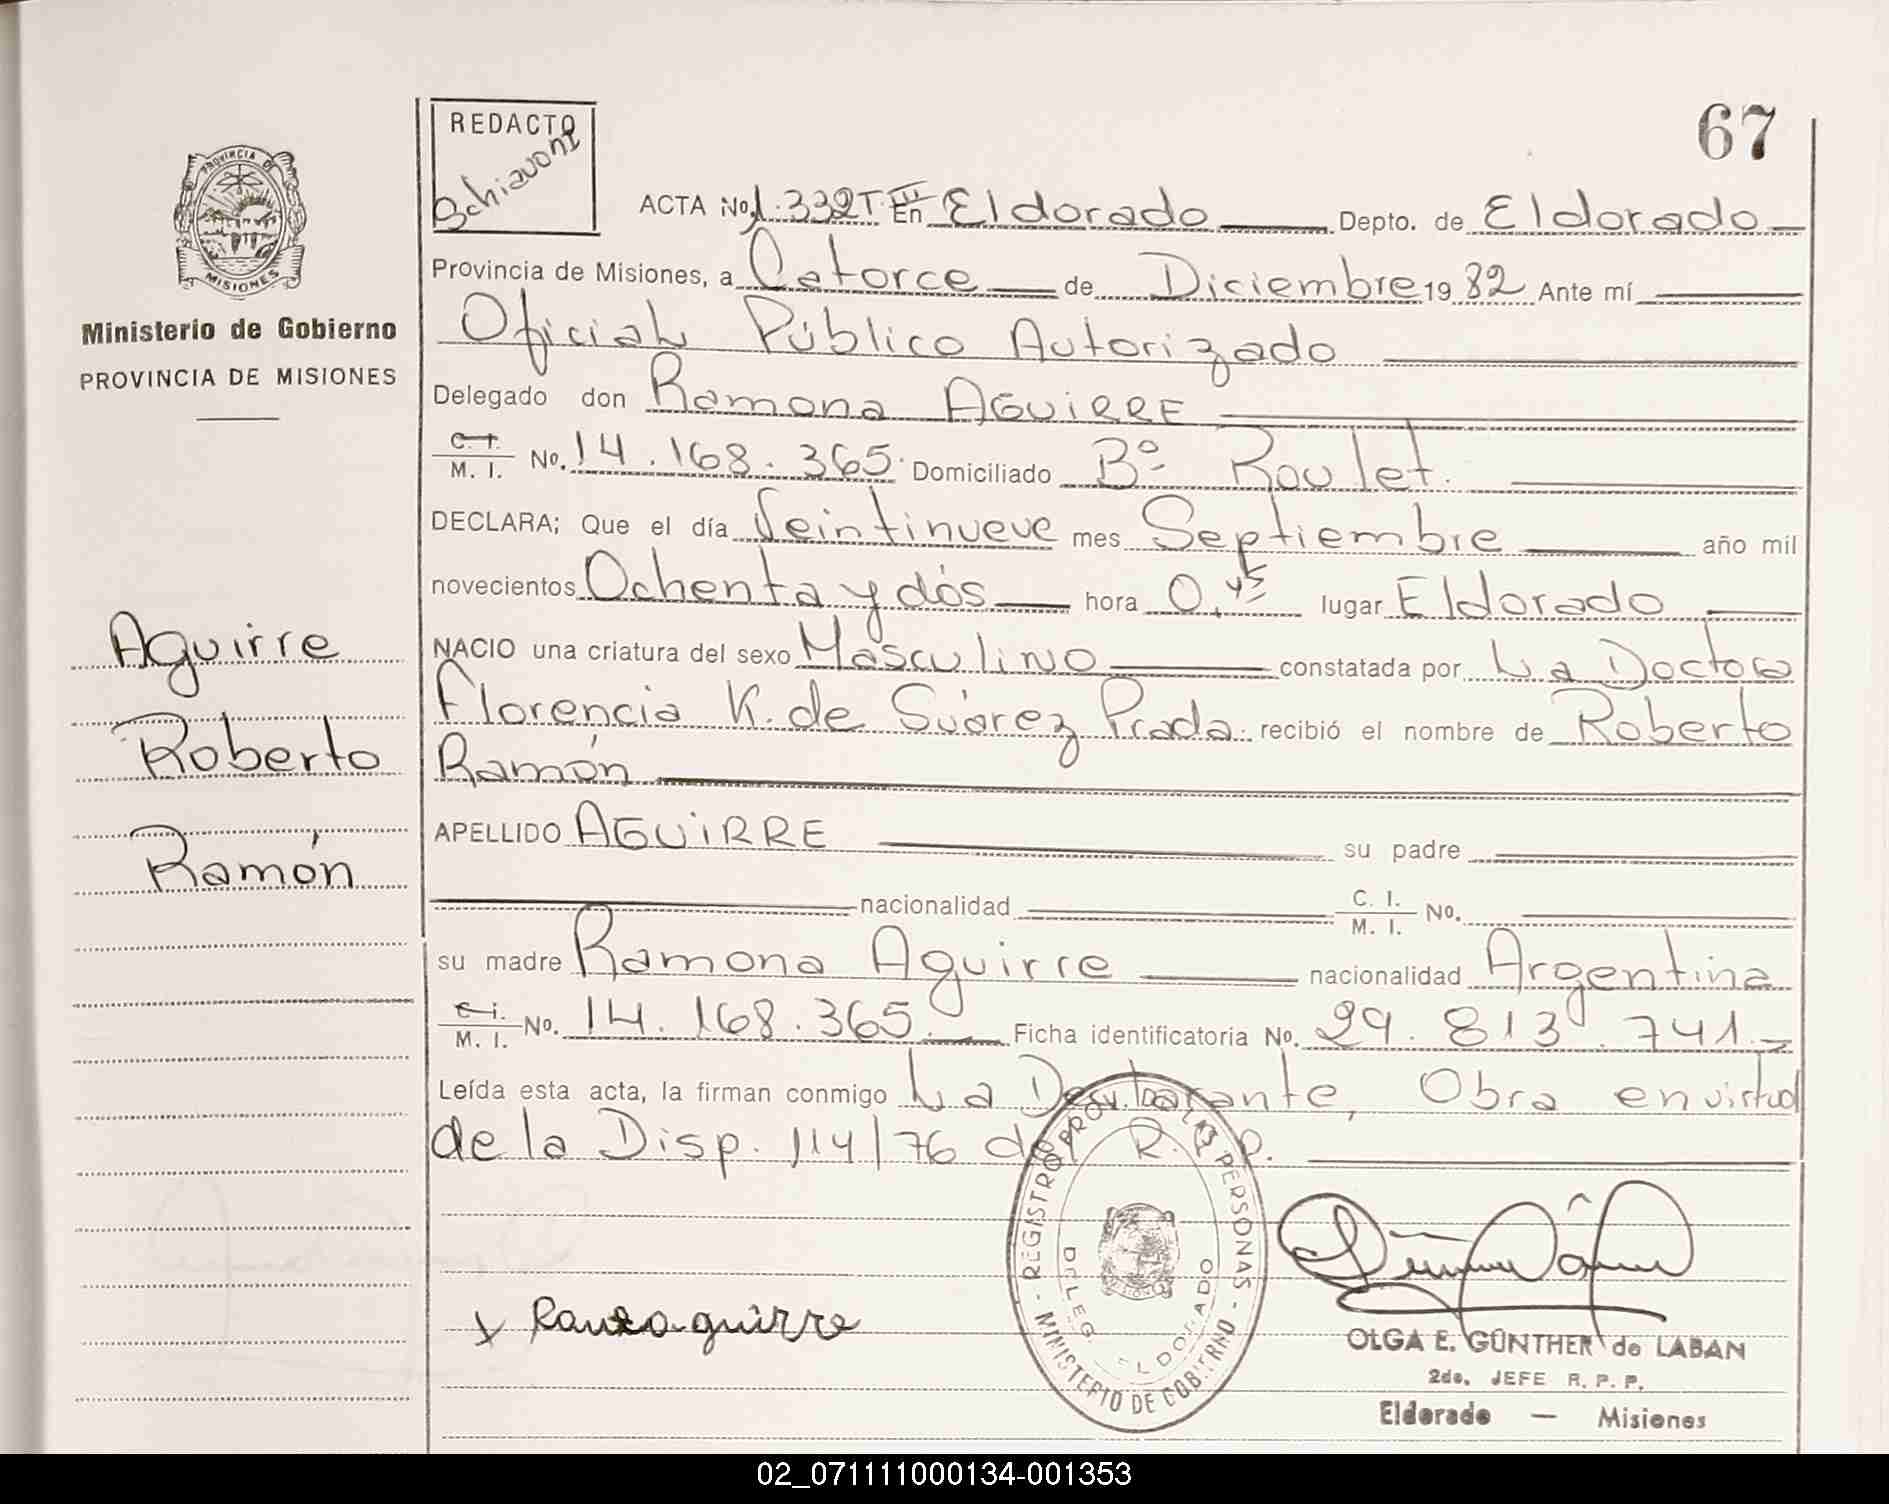 67
REDACTO
Schiavoni
PROVINCIA DE
MISIONES
Ministerio de Gobierno
PROVINCIA DE MISIONES
Aguirre
Roberto
Ramón
ACTA No. 1.332 T. III En Eldorado Depto. de Eldorado
Provincia de Misiones, a Catorce de Diciembre 19 82 Ante mí
Oficial Público Autorizado
Delegado don Ramona AGUIRRE
C. I. / M. I. No. 14.168.365. Domiciliado Bº Roulet.
DECLARA; Que el día Veintinueve mes Septiembre año mil
novecientos Ochenta y dós hora 0,45 lugar Eldorado
NACIO una criatura del sexo Masculino constatada por La Doctora
Florencia K. de Súarez Prada. recibió el nombre de Roberto
Ramón
APELLIDO AGUIRRE su padre
nacionalidad C. I. / M. I. No.
su madre Ramona Aguirre nacionalidad Argentina
C. I. / M. I. No. 14.168.365. Ficha identificatoria No. 29.813.741.-
Leída esta acta, la firman conmigo La Declarante, Obra en virtud
de la Disp. 114/76 del R.P.P.
REGISTRO PROV. DE LAS PERSONAS - MINISTERIO DE GOBIERNO -
DELEG. ELDORADO
OLGA E. GÜNTHER de LABAN
2do. JEFE R. P. P.
Eldorado — Misiones
02_071111000134-001353